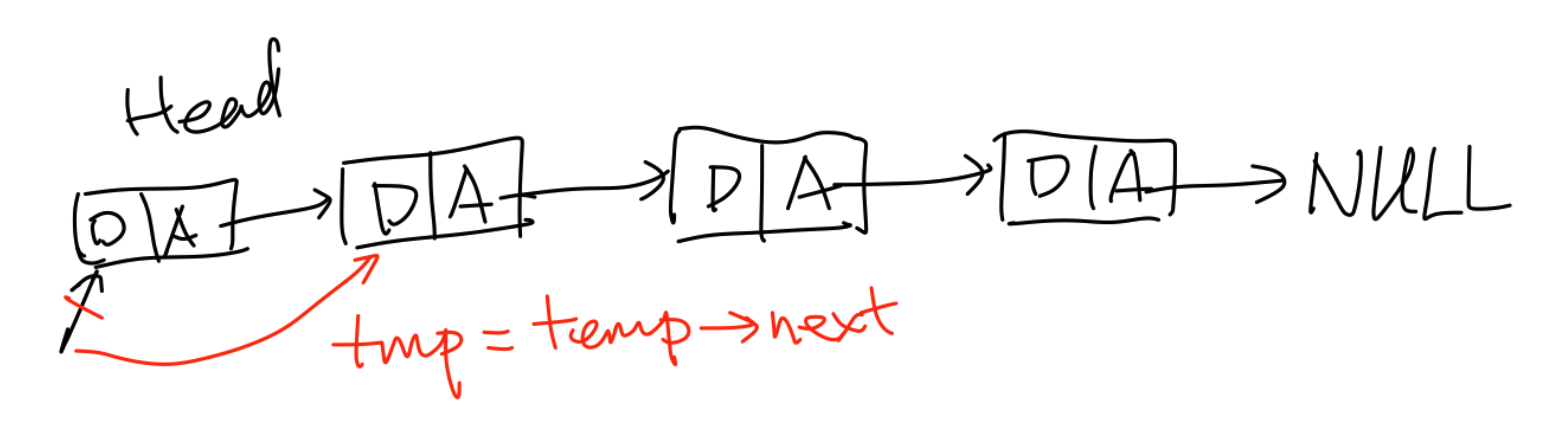 Head
D A D A D A D A NULL
tmp = temp→next